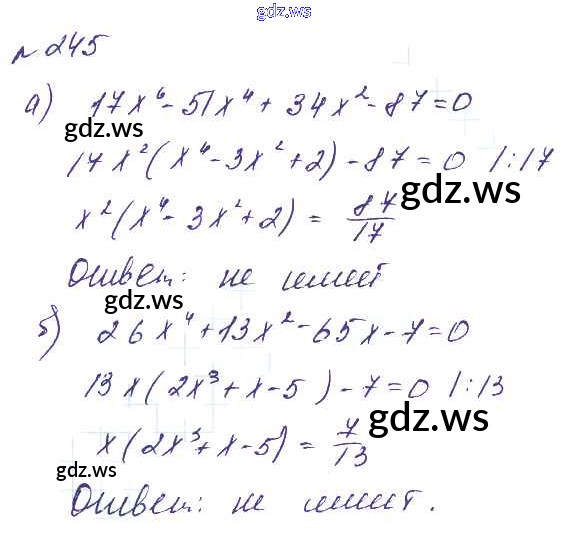 gdz.ws
№ 245
а) 17x⁶ - 51x⁴ + 34x² - 87 = 0
gdz.ws
17x²(x⁴ - 3x² + 2) - 87 = 0 /:17
gdz.ws
x²(x⁴ - 3x² + 2) = 87/17
Ответ: не имеет
gdz.ws
б) 26x⁴ + 13x² - 65x - 7 = 0
13x(2x³ + x - 5) - 7 = 0 /:13
gdz.ws
x(2x³ + x - 5) = 7/13
gdz.ws
Ответ: не имеет.